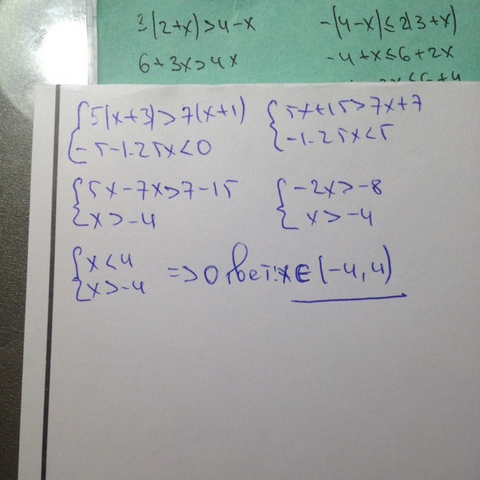 3(2+x)>4-x -(4-x)≤2(3+x)
6+3x>4x -4+x≤6+2x
{5(x+3)>7(x+1) {5x+15>7x+7
{-5-1.25x<0 {-1.25x<5
{5x-7x>7-15 {-2x>-8
{x>-4 {x>-4
{x<4
{x>-4 => Ответ: x∈(-4,4)